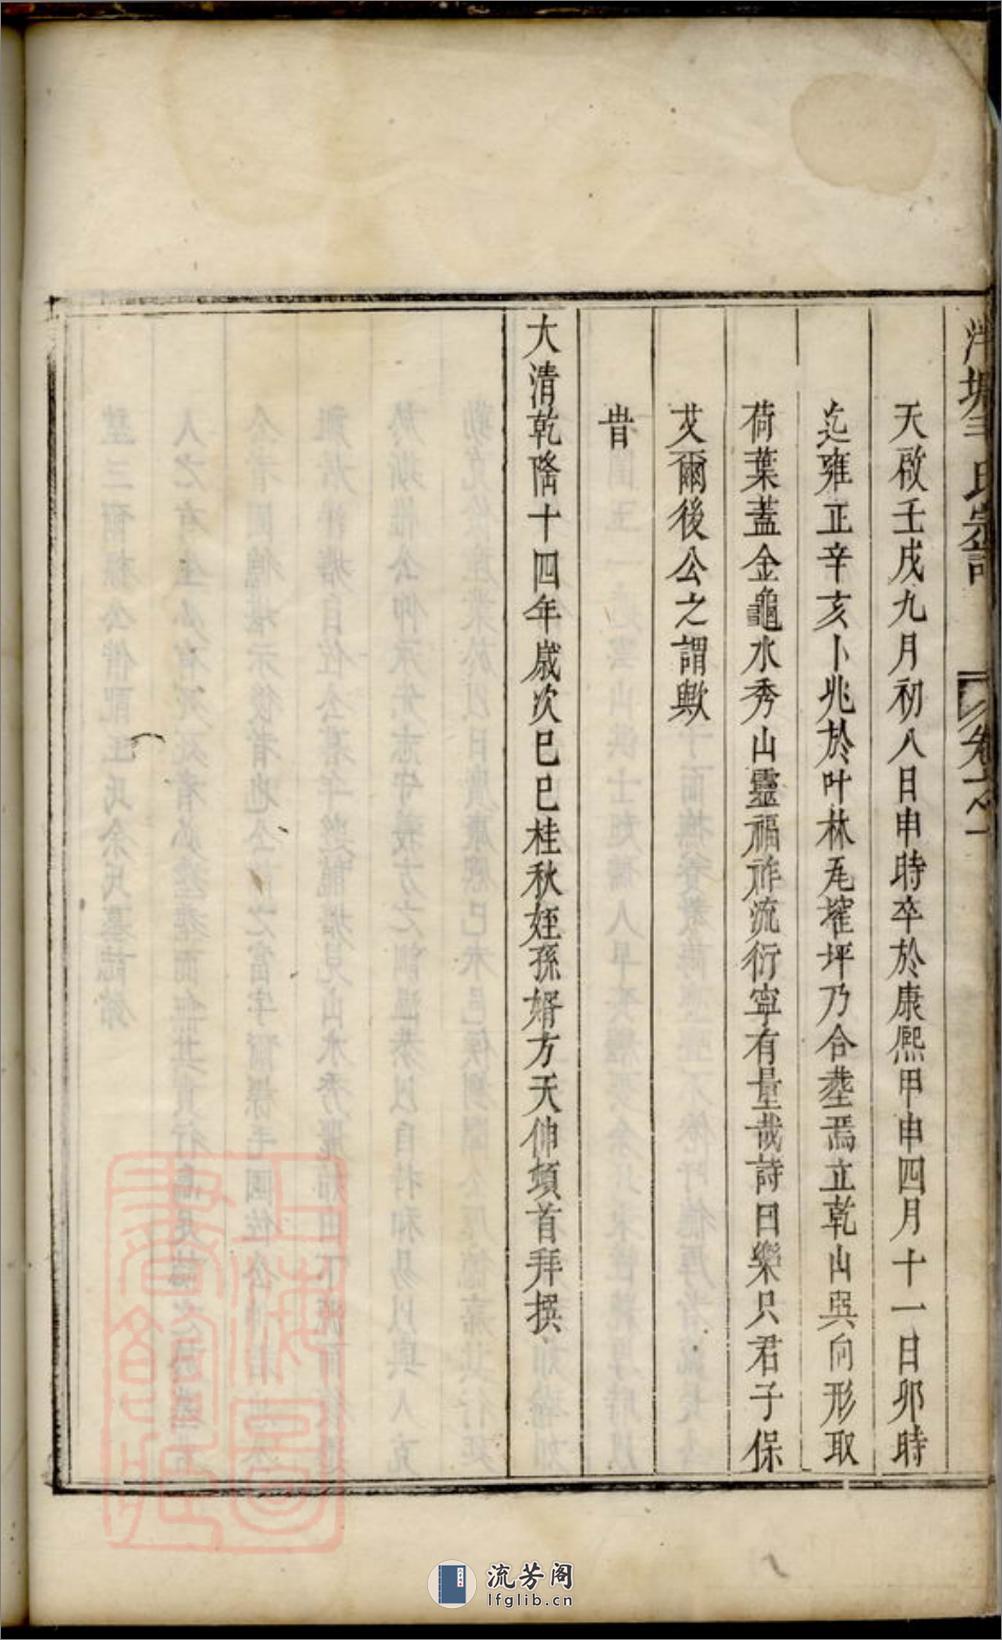 天啟壬戌九月初八日申時卒於康熙甲申四月十一日卯時
迄雍正辛亥卜兆於叶林毛㙮坪乃合塟焉立乾山巽向形取
荷葉蓋金龜水秀山靈福祚流衍寧有量哉詩曰樂只君子保
艾爾後公之謂歟
旹
大清乾隆十四年歲次己巳桂秋姪孫婿方天伸頓首拜撰
流芳阁
lfglib.cn